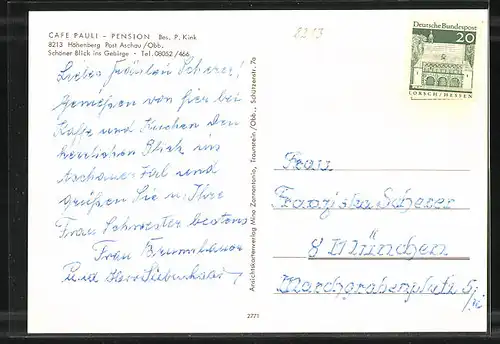 CAFE PAULI - PENSION Bes. P. Kink
8213 Höhenberg Post Aschau/Obb.
Schöner Blick ins Gebirge - Tel. 08052/466
Liebes Fräulein Scherer!
Genießen von hier bei
Kaffe und Kuchen den
herrlichen Blick ins
Aschauer Tal und
grüßen Sie u. Ihre
Frau Schwester bestens
Frau Brummbauer
und Herr Siebenhaar
Ansichtskartenverlag Nino Zannantonio, Traunstein/Obb., Schützenstr. 7a
2771
8213
Deutsche Bundespost
20
LORSCH/HESSEN
Frau
Franziska Scherer
8 München
Marchgrabenplatz 5/